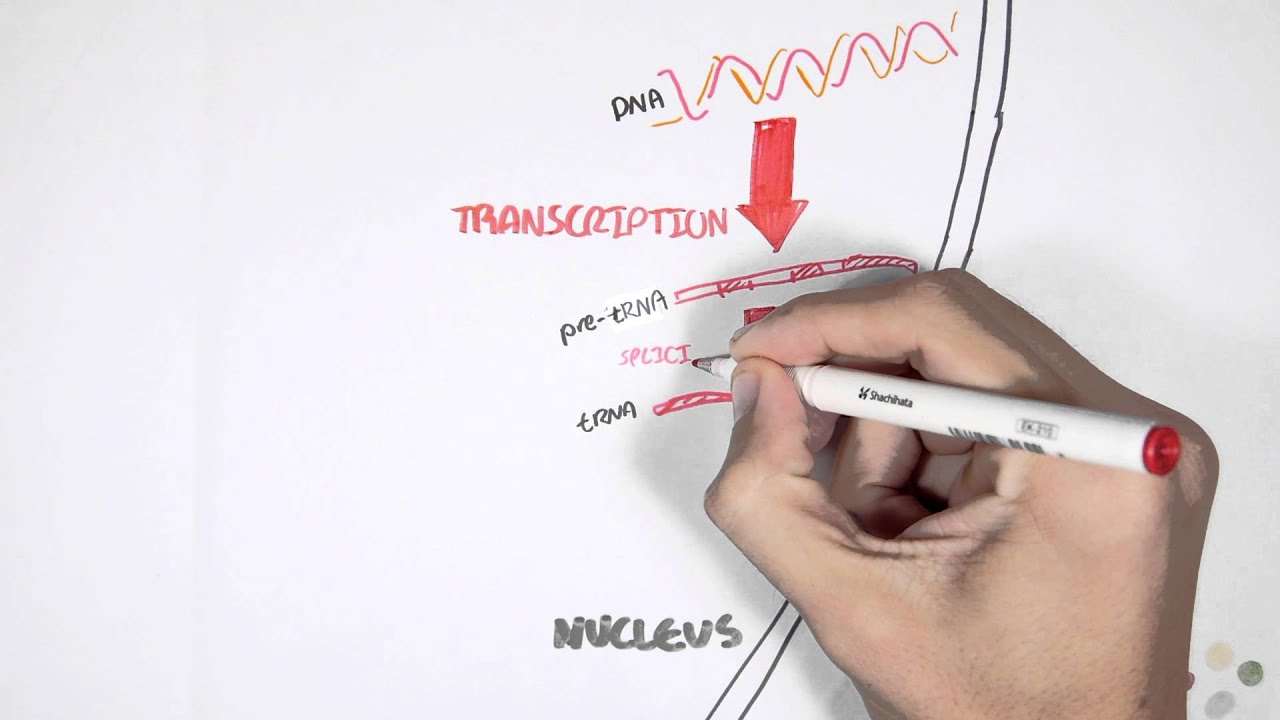 DNA
TRANSCRIPTION
pre-tRNA
SPLICI
tRNA
Shachihata
EK-210
NUCLEUS